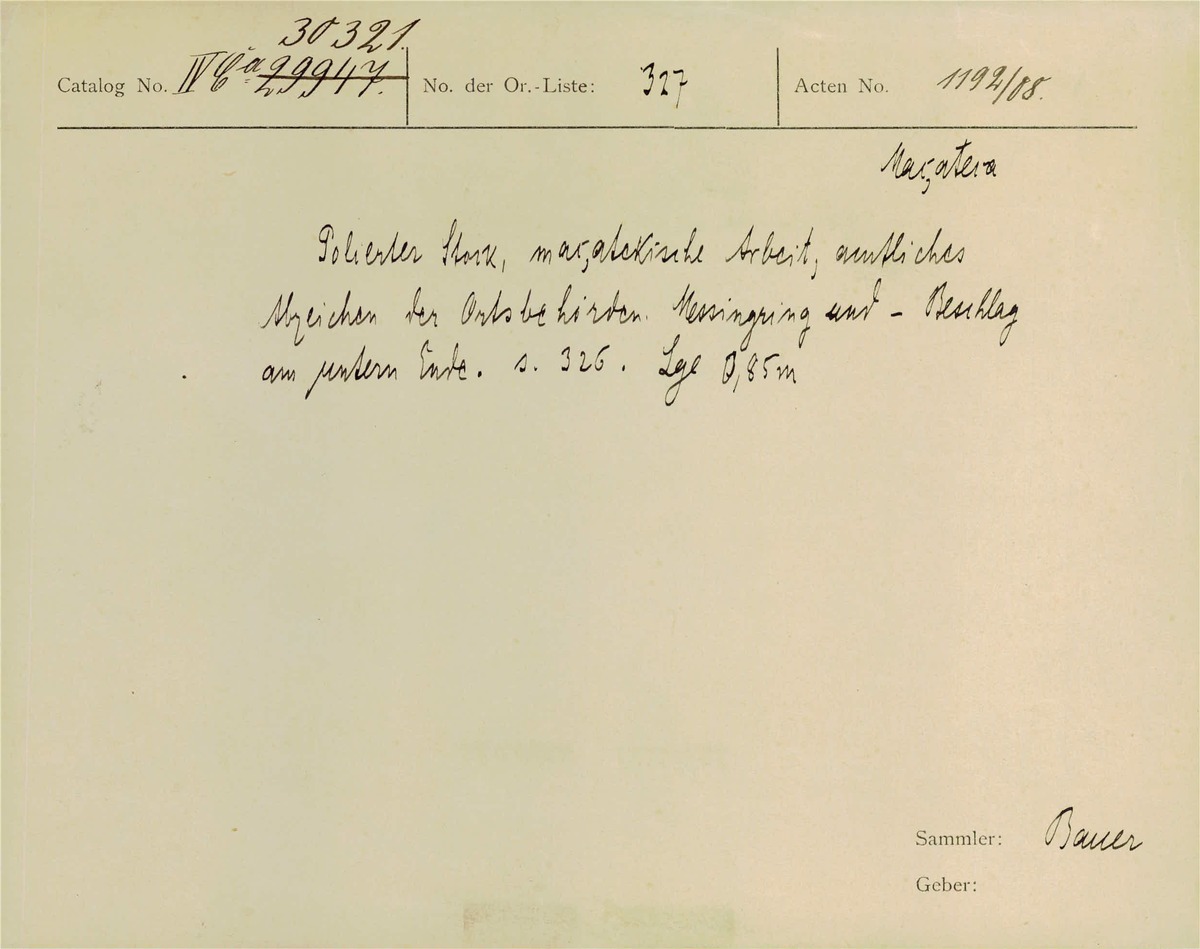 30321.
Catalog No. IV Ca 29947. No. der Or.-Liste: 327 Acten No. 1192/08.
Maçateca
Polierter Stock, maçatekische Arbeit, amtliches
Abzeichen der Ortsbehörden. Messingring und - Beschlag
am untern Ende. s. 326. Lge 0,85m
Sammler: Bauer
Geber: